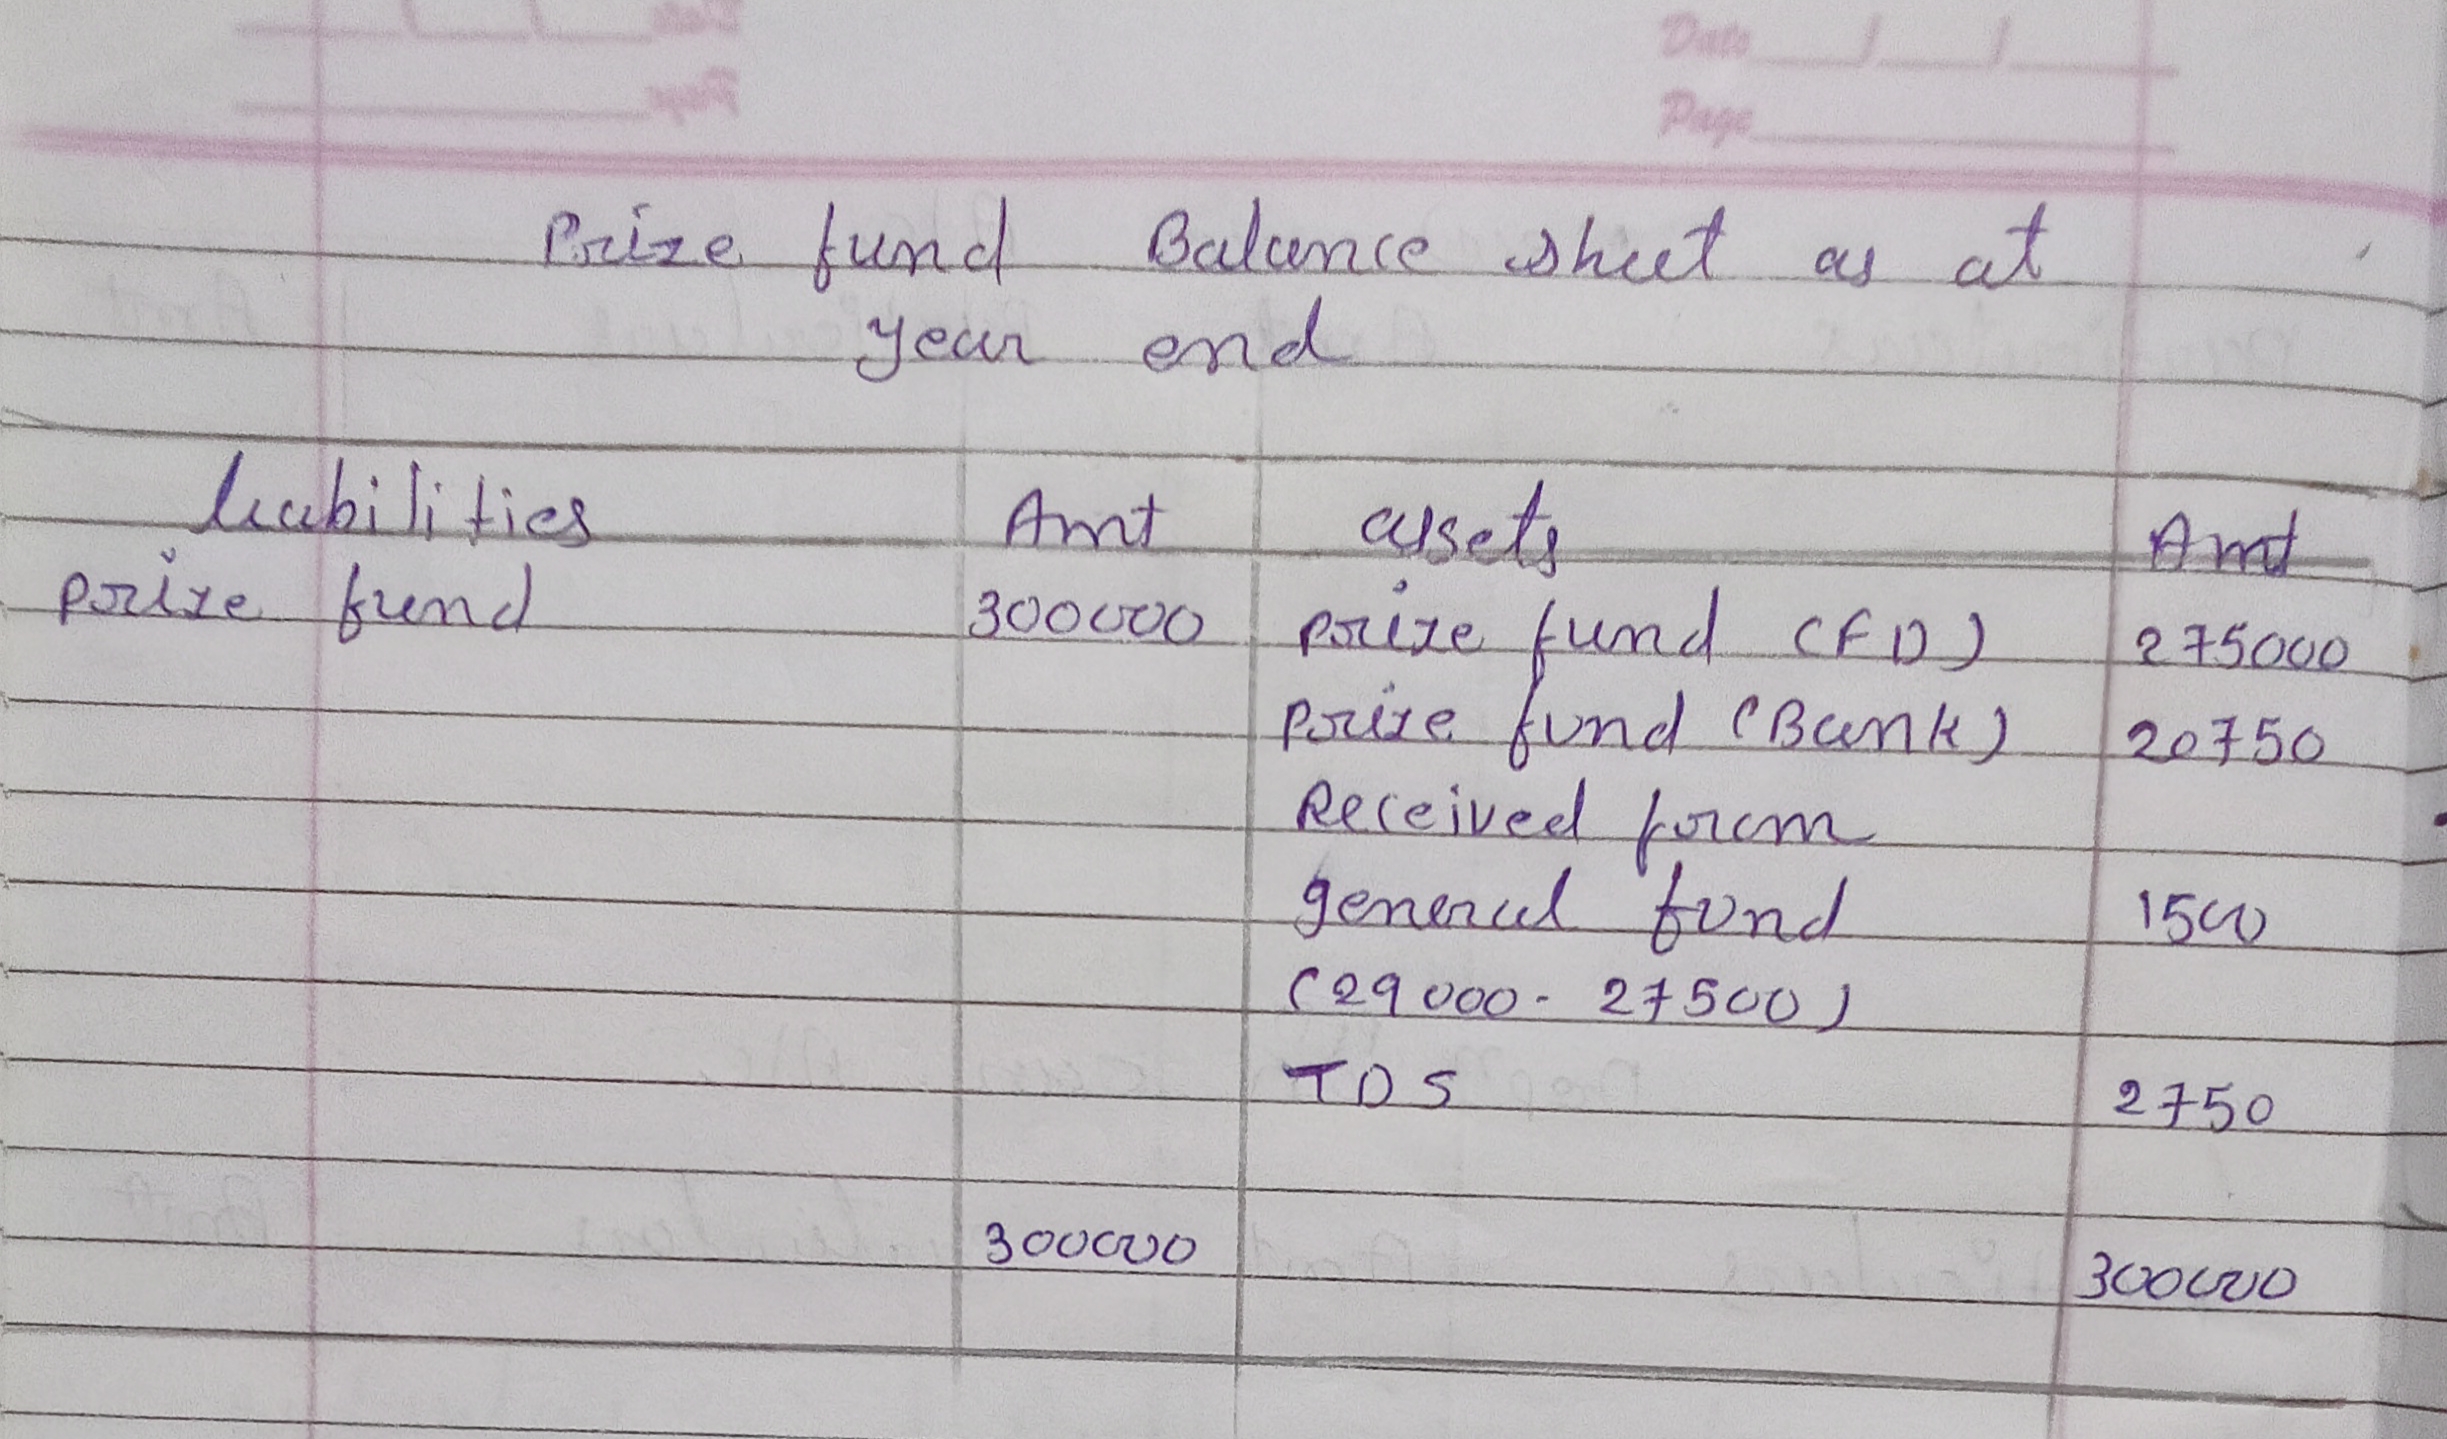 Date
Page
Prize fund Balance sheet as at
year end
liabilities Amt assets Amt
prize fund 300000 prize fund (FD) 275000
prize fund (Bank) 20750
Received form
general fund 1500
(29000 - 27500)
TDS 2750
300000 300000